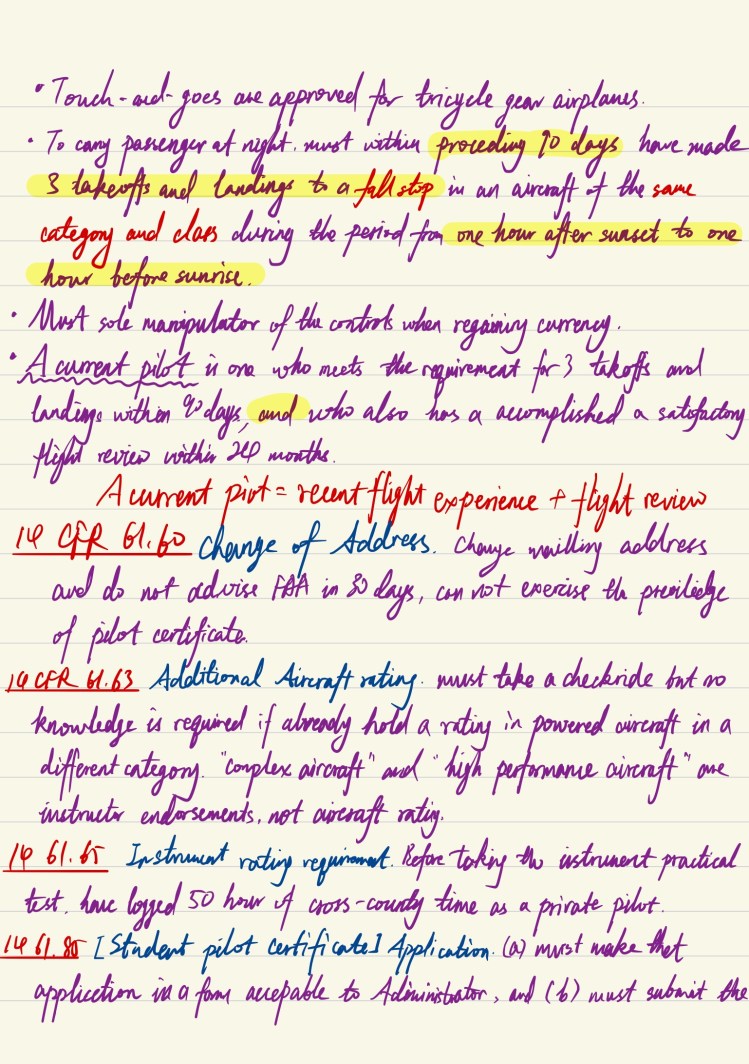 • Touch-and-goes are approved for tricycle gear airplanes.
• To carry passenger at night, must within proceding 90 days have made
3 takeoffs and landings to a full stop in an aircraft of the same
category and class during the period from one hour after sunset to one
hour before sunrise.
• Must sole manipulator of the controls when regaining currency.
• A current pilot is one who meets the requirement for 3 takoffs and
landings within 90 days, and who also has a accomplished a satisfactory
flight review within 24 months.
A current pivot = recent flight experience + flight review
14 CFR 61.60 Change of Address. Change mailling address
and do not advise FAA in 30 days, can not exercise the previledge
of pilot certificate.
14 CFR 61.63 Additional Aircraft rating. must take a checkride but no
knowledge is required if already hold a rating in powered aircraft in a
different category. "complex aircraft" and "high performance aircraft" are
instructor endorsements, not aircraft rating.
14 61.65 Instrument rating requirement. Before taking the instrument practical
test, have logged 50 hour of cross-county time as a private pilot.
14 61.85 [Student pilot certificate] Application. (a) must make that
application in a form accepable to Administrator, and (b) must submit the